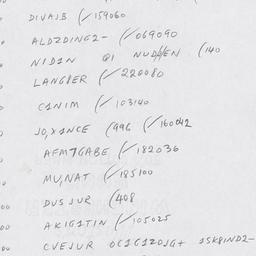 DIVAJB (/159060
ALDZDINE2- (/069090
NID1N @1 NUDHEN (140
LANGBER (/220080
C1NIM (/103140
JO,X1NCE (996 (/160042
AFM7GABE (/182036
MU,NAT (/185100
DUSJUR (408
AKIG1TIN (/105025
CVEJUR OC1G1ZOJG+ 15K8IND2-